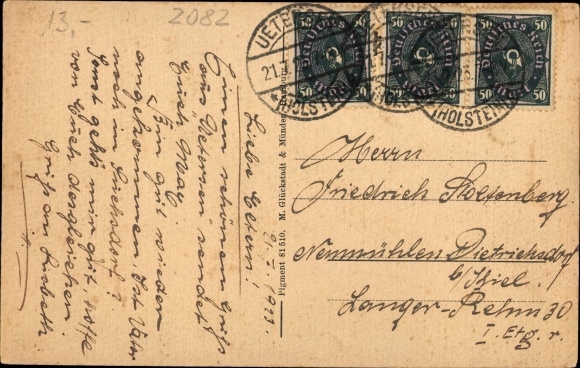 13,-
2082
UETERSEN
21.7.23
(HOLSTEIN)
Deutsches Reich
50
50
Deutsches Reich
50
50
Deutsches Reich
50
50
(HOLSTEIN)
21.7.1923.
Liebe Eltern!
Einen schönen Gruß
aus Uetersen sendet
Euch
Bin gut wieder
angekommen. Ist Vater
noch in
Sonst geht's mir gut, hoffe
von Euch desgleichen.
Gruß an Lisbeth
Pigment 81510. M. Glückstadt & Münden, Hamburg
Herrn
Friedrich Stoltenberg
Neumühlen Dietrichsdorf
b/Kiel.
Langer-Rehm 30
I. Etg. r.